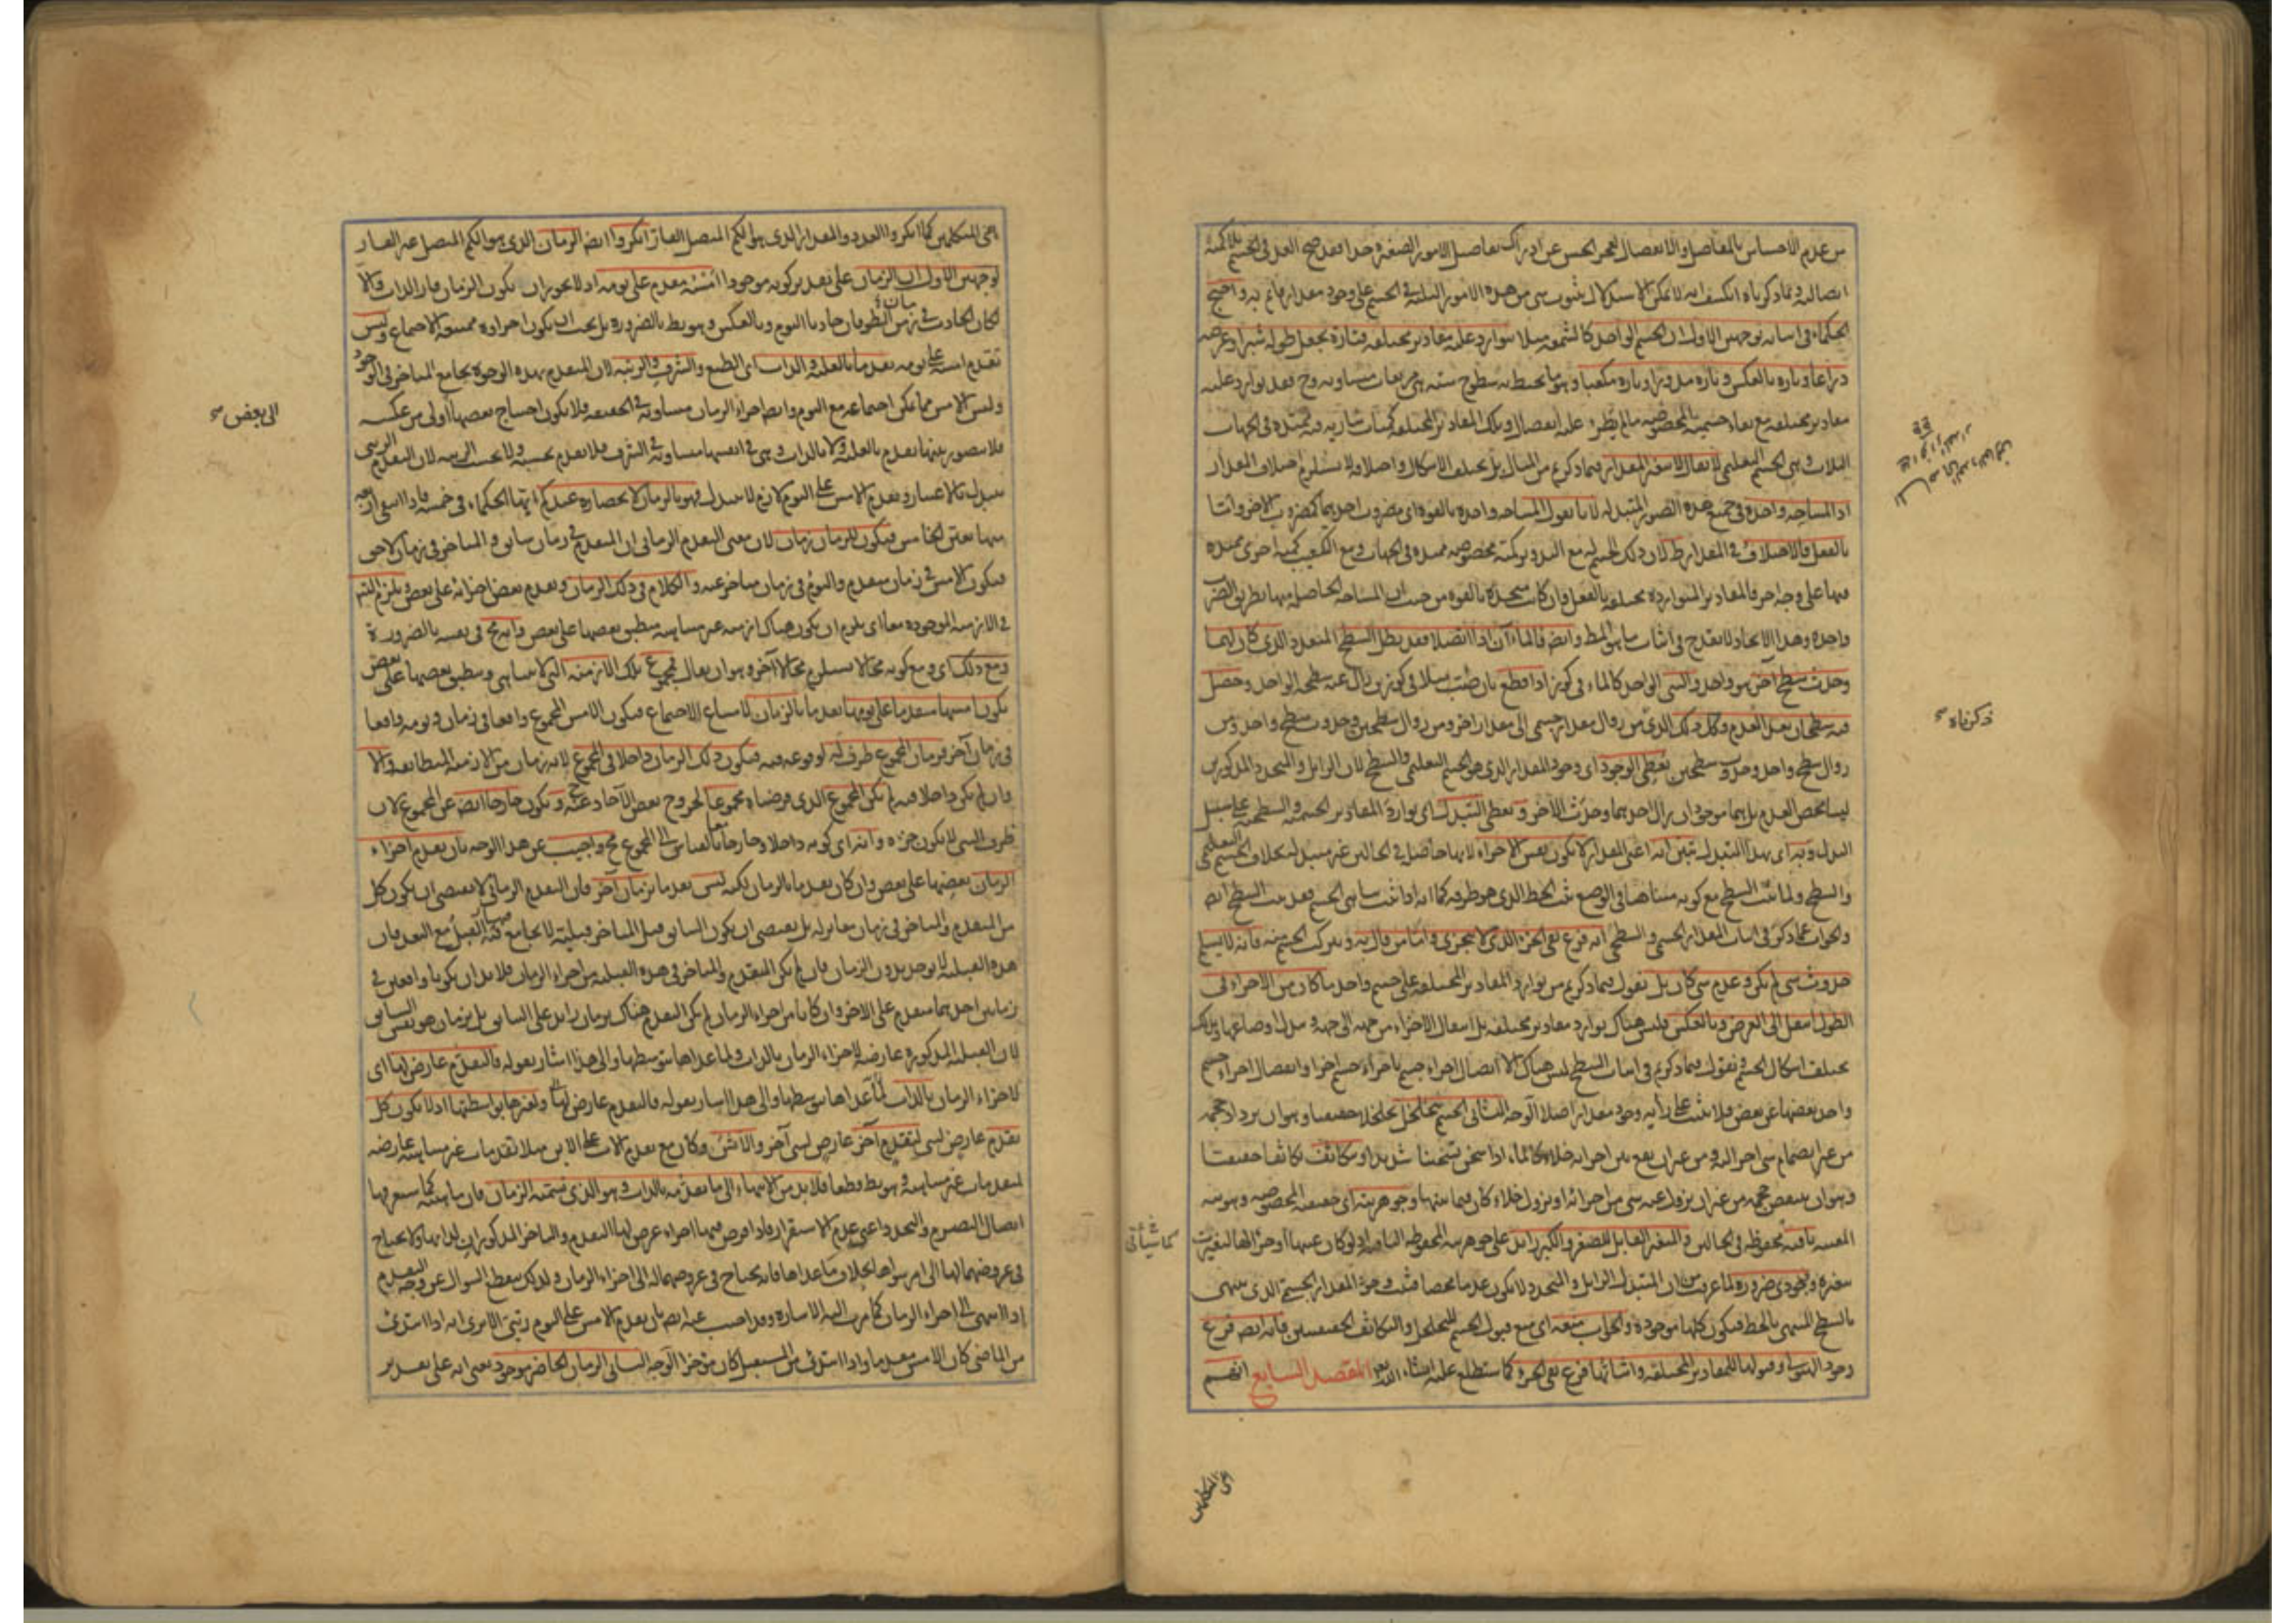 من عدم الاحساس بالمفاصل والانفصال لعجز الحس عن ادراك تفاصيل الامور الصغيرة جدا فقد صح العد في الجسم بلا كمية
اتصالية وبما ذكرناه انكشف انه لا يمكن الاستدلال بثبوت شيء من هذه الامور الثلثة في الجسم على وجود مقدار قائم به واحتج
الحكماء في اثباته بوجهين الاول ان الجسم الواحد كالشمعة مثلا يتوارد عليه مقادير مختلفة فتارة يجعل طوله شبرا وعرضه
ذراعا وتارة بالعكس وتارة مدورا وتارة مكعبا وهو ما يحيط به سطوح ستة هي مربعات متساوية وح فقد توارد عليه
مقادير مختلفة مع بقاء جسميته المخصوصة ما لم يطرء عليه انفصال وتلك المقادير المختلفة كميات سارية فيه ممتدة في الجهات
الثلاث وهي الجسم التعليمي لا يقال لا يتغير المقدار فيما ذكرتم من المثال بل يختلف الاشكال واختلافه لا يستلزم اختلاف المقدار
اذ المساحة واحدة في جميع هذه الصور المتبدلة لانا نقول المساحة واحدة بالقوة اي مضروب احديهما كمضروب الاخر واما
بالفعل فالاختلاف في المقدار ظ لان ذلك الجسم له مع التدوير كمية مخصوصة ممتدة في الجهات ومع التكعيب كمية اخرى ممتدة
فيها على وجه اخر فالمقادير المتواردة مختلفة بالفعل وان كانت متحدة بالقوة من حيث ان المساحة الحاصلة منها بطريق الضرب
واحدة وهذا الاتحاد لا يقدح في اثبات ما هو المط وايضا فالماءان اذا اتصلا فقد بطل السطح المتعدد الذي كان لهما
وحدث سطح آخر هو واحد والشيء الواحد كالماء في كوز اذا قطع بان صب مثلا في كوزين زال عنه سطحه الواحد وحصل
فيه سطحان بعد العدم وكل ذلك الذي من زوال مقدار جسمي الى مقدار اخر ومن زوال سطحين وحدوث سطح واحد ومن
زوال سطح واحد وحدوث سطحين يعطي الوجود اي وجود المقدار الذي هو الجسم التعليمي والسطح لان الزائل والمتجدد المذكورين
ليسا محض العدم بل هما موجودان زال احدهما وحدث الآخر ويعطي التبدل اي توارد المقادير الجسمية والسطحية على سبيل
البدل وبه اي بهذا التبدل تبين انه اعني المقدار لا يكون نفس الاجزاء لانها حاصلة في الحالين غير متبدلة بخلاف الجسم التعليمي
والسطح ولما ثبت السطح مع كونه متناهيا في الوضع ثبت الخط الذي هو طرفه كما انه اذا ثبت تناهي الجسم فقد ثبت السطح ايضا
والجواب عما ذكر في اثبات المقدار الجسمي والسطحي انه فرع نفي الجزء الذي لا يتجزى واما من قال به وبتركب الجسم منه فانه لا يسلم
حدوث شيء لم يكن وعدم شيء كان بل نقول فيما ذكرتم من توارد المقادير المختلفة على جسم واحد ما كان من الاجزاء في
الطول انتقل الى العرض وبالعكس فليس هناك توارد مقادير مختلفة بل انتقال الاجزاء من جهة الى جهة وتبدل اوضاعها وبذلك
يختلف اشكال الجسم ونقول فيما ذكرتم في اثبات السطح ليس هناك الا اتصال اجزاء جسم باجزاء جسم اخر او انفصال اجزاء جسم
واحد بعضها عن بعض فلا يثبت على رأيه وجود مقدار اصلا الوجه الثاني الجسم يتخلخل تخلخلا حقيقيا وهو ان يزداد حجمه
من غير انضمام شيء آخر اليه ومن غير ان يقع بين اجزائه خلاء كالماء اذا سخن تسخينا شديدا ويتكاثف تكاثفا حقيقيا
وهو ان ينتقص حجمه من غير ان يزول عنه شيء من اجزائه او يزول خلاء كان فيما بينها وجوهريته اي حقيقته المخصوصة وهويته
المعينة باقية محفوظة في الحالين والمتغير القابل للصغر والكبر زائد على جوهريته المحفوظة الباقية اذ لو كان عينها او جزءا لها لتغيرت
بتغيره ووجودي ضرورة لما عرفت من ان المتبدل الزائل والمتجدد لا يكون عدما محضا فثبت وجود المقدار الجسمي الذي ينتهي
بالسطح المنتهي بالخط فيكون كلها موجودة والجواب منعه اي منع قبول الجسم للتخلخل والتكاثف الحقيقيين فانه ايضا فرع
وجود الهيولى وقبولها للمقادير المختلفة واثباتها فرع نفي الجزء كما ستطلع عليه ان شاء الله تعالى المقصد السابع انهم
ذكرناه
اعني المتكلمين
اعني المتكلمين كما انكروا العدد والمقدار الذي هو الكم المتصل القار انكروا ايضا الزمان الذي هو الكم المتصل غير القار
لوجهين الاول ان الزمان على تقدير كونه موجودا امسه مقدم على يومه اذ لا يجوز ان يكون الزمان قار الذات والا
لكان الحادث في زمن الطوفان حادثا اليوم وبالعكس وهو بط بالضرورة بل يجب ان يكون اجزاؤه ممتنعة الاجتماع وليس
تقدم امسه على يومه تقدما بالعلية والذات اي الطبع والشرف والرتبة لان المتقدم بهذه الوجوه يجامع المتاخر في الوجود
وليس الامس مما يمكن اجتماعه مع اليوم وايضا اجزاء الزمان متساوية في الحقيقة فلا يكون احتياج بعضها اولى من عكسه
فلا يتصور بينها تقدم بالعلية ولا بالذات وهي في انفسها متساوية في الشرف فلا تقدم بحسبه ولا بحسب الرتبة لان التقدم الرتبي
يتبدل بالاعتبار وتقدم الامس على اليوم لازم لا يتبدل فهو بالزمان لانحصاره عندكم ايها الحكماء في خمسة فاذا انتفى اربعة
منها تعين الخامس فيكون للزمان زمان لان معنى التقدم الزماني ان المتقدم في زمان سابق والمتاخر في زمان لاحق
فيكون الامس في زمان متقدم واليوم في زمان متاخر عنه والكلام في ذلك الزمان وتقدم بعض اجزائه على بعض ويلزم التس
في الازمنة الموجودة معا اي يلزم ان يكون هناك ازمنة غير متناهية منطبق بعضها على بعض وانه مح في نفسه بالضرورة
ومع ذلك اي ومع كونه محالا يستلزم محالا آخر وهو ان يقال مجموع تلك الازمنة التي لا تتناهى وينطبق بعضها على بعض
يكون امسها متقدما على يومها تقدما بالزمان لامتناع الاجتماع فيكون الامس المجموع واقعا في زمان ويومه واقعا
في زمان آخر فزمان المجموع ظرف له لوقوعه فيه فيكون ذلك الزمان داخلا في المجموع لانه زمان من الازمنة المتطابقة والا
وان لم يكن داخلا فيه لم يكن المجموع الذي فرضناه مجموعا لخروج بعض الآحاد عنه ويكون خارجا ايضا عن المجموع لان
ظرف الشيء لا يكون جزءه وانه اي كونه داخلا وخارجا معا بالقياس الى المجموع مح واجيب عن هذا الوجه بان تقدم اجزاء
الزمان بعضها على بعض وان كان تقدما بالزمان لكنه ليس تقدما بزمان آخر فان التقدم الزماني لا يقتضي ان يكون كل
من المتقدم والمتاخر في زمان مغاير له بل يقتضي ان يكون السابق قبل المتاخر قبلية لا يجامع فيها القبل مع البعد فان
هذه القبلية لا توجد بدون الزمان فان لم يكن المتقدم والمتاخر في هذه القبلية من اجزاء الزمان فلا بد ان يكونا واقعين في
زمانين احدهما متقدم على الاخر وان كانا من اجزاء الزمان لم يكن التقدم هناك بزمان زائد على السابق بل بزمان هو نفس السابق
لان القبلية المذكورة عارضة لاجزاء الزمان بالذات ولما عداها بتوسطها والى هذا اشار بقوله فالتقدم عارض لها اي
لاجزاء الزمان بالذات لما عداها بتوسطها والى هذا اشار بقوله فالتقدم عارض لها ولغيرها بواسطتها اذ لا يكون كل
تقدم عارض لشيء لتقدم آخر عارض لشيء آخر والا تس وكان مع تقدم الاب على الابن مثلا تقدمات غير متناهية عارضة
لمتقدمات غير متناهية وهو بط قطعا فلا بد من الانتهاء الى ما تقدمه بالذات وهو الذي نسميه الزمان فان ماهيته كما ستعرفها
اتصال التصرم والتجدد اعني عدم الاستقرار فاذا فرض فيها اجزاء عرض لها التقدم والتاخر المذكوران لذاتها ولا يحتاج
في عروضهما لها الى امر سواها بخلاف ما عداها فانه يحتاج في عروضهما له الى اجزاء الزمان ولذلك ينقطع السؤال عن وجه التقدم
اذا انتهى الى اجزاء الزمان كما مرت اليه الاشارة وقد اجيب عنه ايضا بان تقدم الامس على اليوم رتبي الا يرى انه اذا ابتدئ
من الماضي كان الامس مقدما واذا ابتدئ من المستقبل كان مؤخرا الوجه الثاني الزمان الحاضر موجود يعني انه على تقدير
الى بعض
كما سيأتي